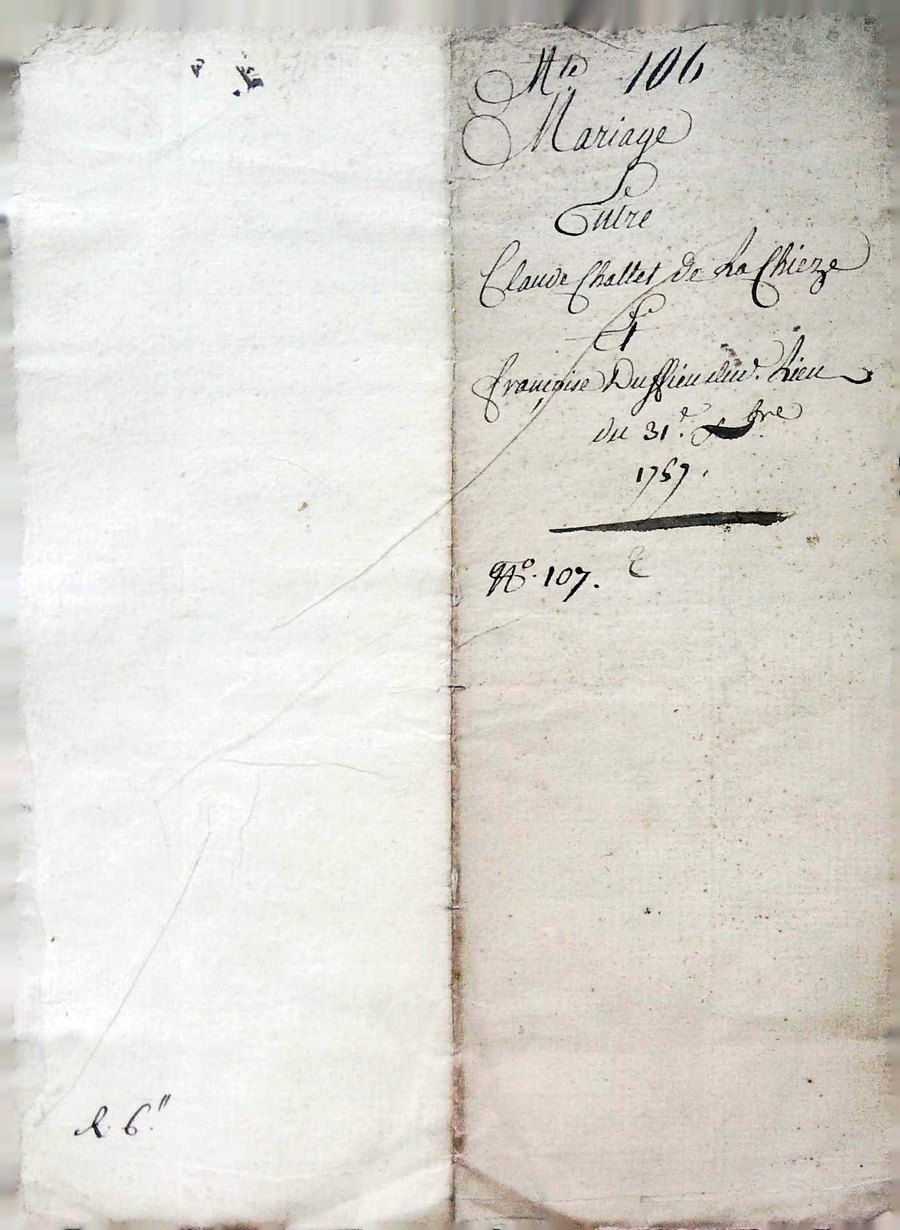 Nte 106
Mariage
Entre
Claude Chattet de La Chieze
Et
françoise Duffieu dud. Lieu
du 31e. bre
1757.
No. 107.
R. 6"